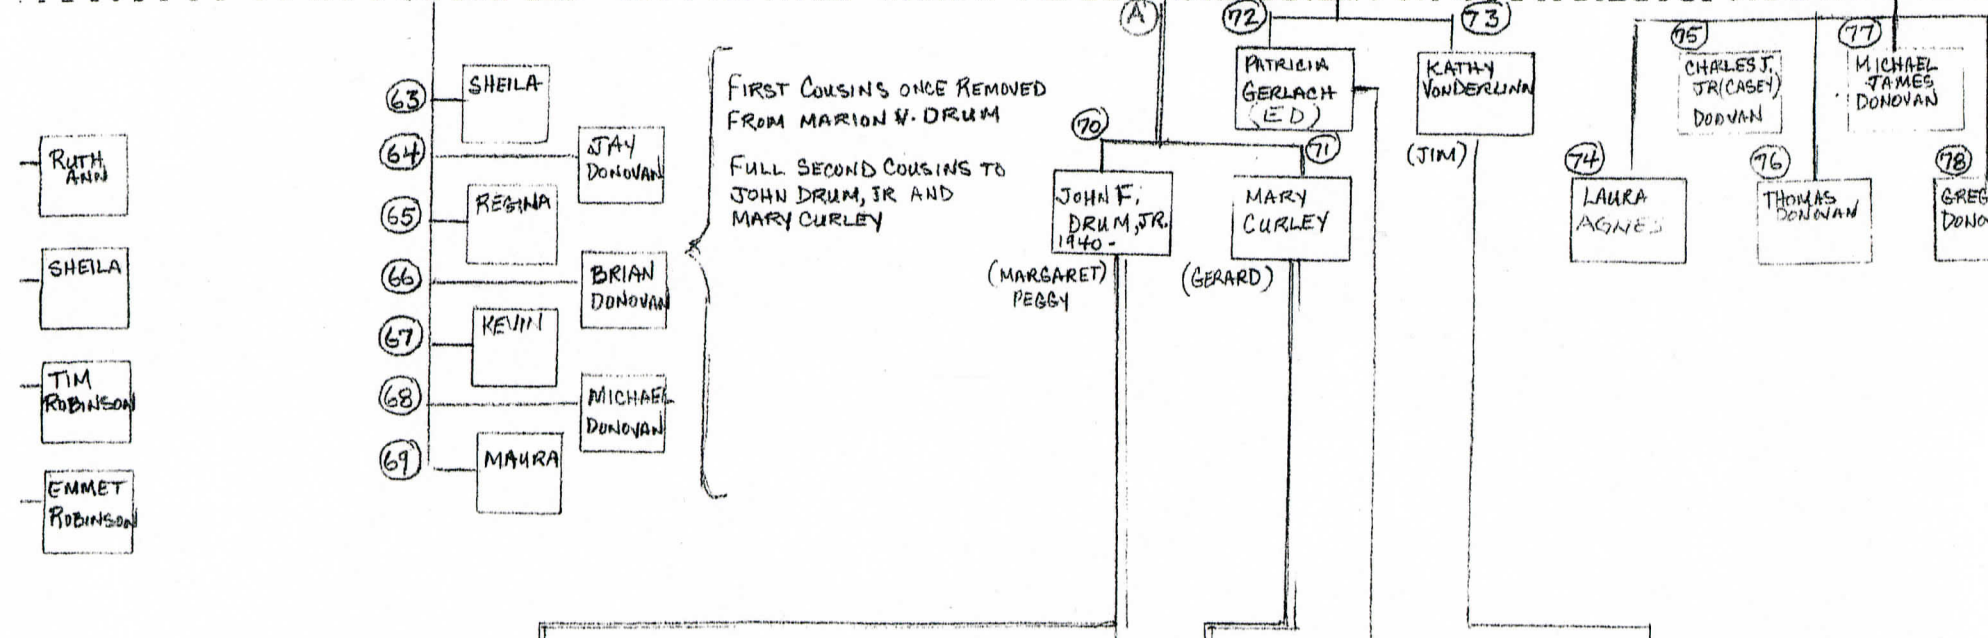 RUTH
ANN
SHEILA
TIM
ROBINSON
EMMET
ROBINSON
63
SHEILA
64
JAY
DONOVAN
65
REGINA
66
BRIAN
DONOVAN
67
KEVIN
68
MICHAEL
DONOVAN
69
MAURA
FIRST COUSINS ONCE REMOVED
FROM MARION V. DRUM
FULL SECOND COUSINS TO
JOHN DRUM, JR AND
MARY CURLEY
A
70
JOHN F.
DRUM, JR.
1940-
(MARGARET)
PEGGY
71
MARY
CURLEY
(GERARD)
72
PATRICIA
GERLACH
(ED)
73
KATHY
VONDERLINN
(JIM)
74
LAURA
AGNES
75
CHARLES J.
JR (CASEY)
DODVAN
76
THOMAS
DONOVAN
77
MICHAEL
JAMES
DONOVAN
78
GREG
DONO